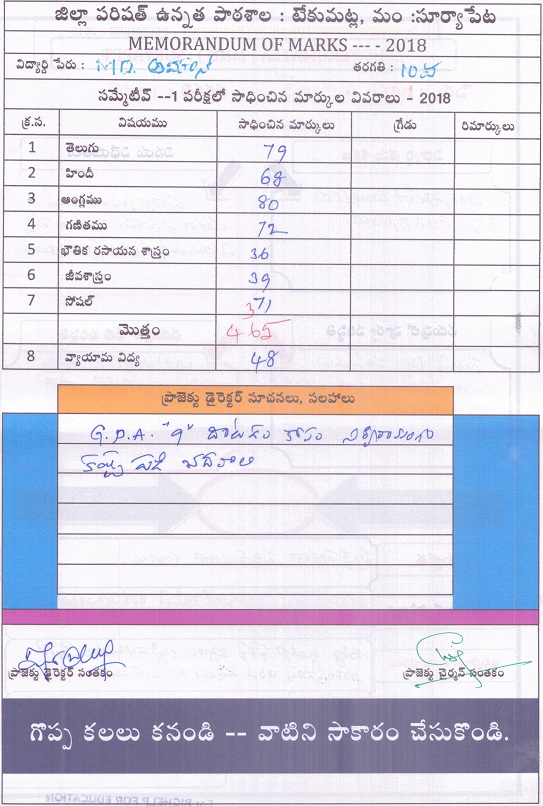 జిల్లా పరిషత్ ఉన్నత పాఠశాల : టేకుమట్ల, మం :సూర్యాపేట
MEMORANDUM OF MARKS --- - 2018
విద్యార్థి పేరు : MD. తరగతి : 10వ
సమ్మేటీవ్ --1 పరీక్షలో సాధించిన మార్కుల వివరాలు - 2018
క్ర.స. విషయము సాధించిన మార్కులు గ్రేడు రిమార్కులు
1 తెలుగు 79
2 హిందీ 68
3 ఆంగ్లము 80
4 గణితము 72
5 భౌతిక రసాయన శాస్త్రం 36
6 జీవశాస్త్రం 39
7 సోషల్ 71
మొత్తం 465
8 వ్యాయామ విద్య 48
ప్రాజెక్టు డైరెక్టర్ సూచనలు, సలహాలు
G.P.A. "9" కోసం
ప్రాజెక్టు డైరెక్టర్ సంతకం ప్రాజెక్టు చైర్మన్ సంతకం
గొప్ప కలలు కనండి -- వాటిని సాకారం చేసుకొండి.